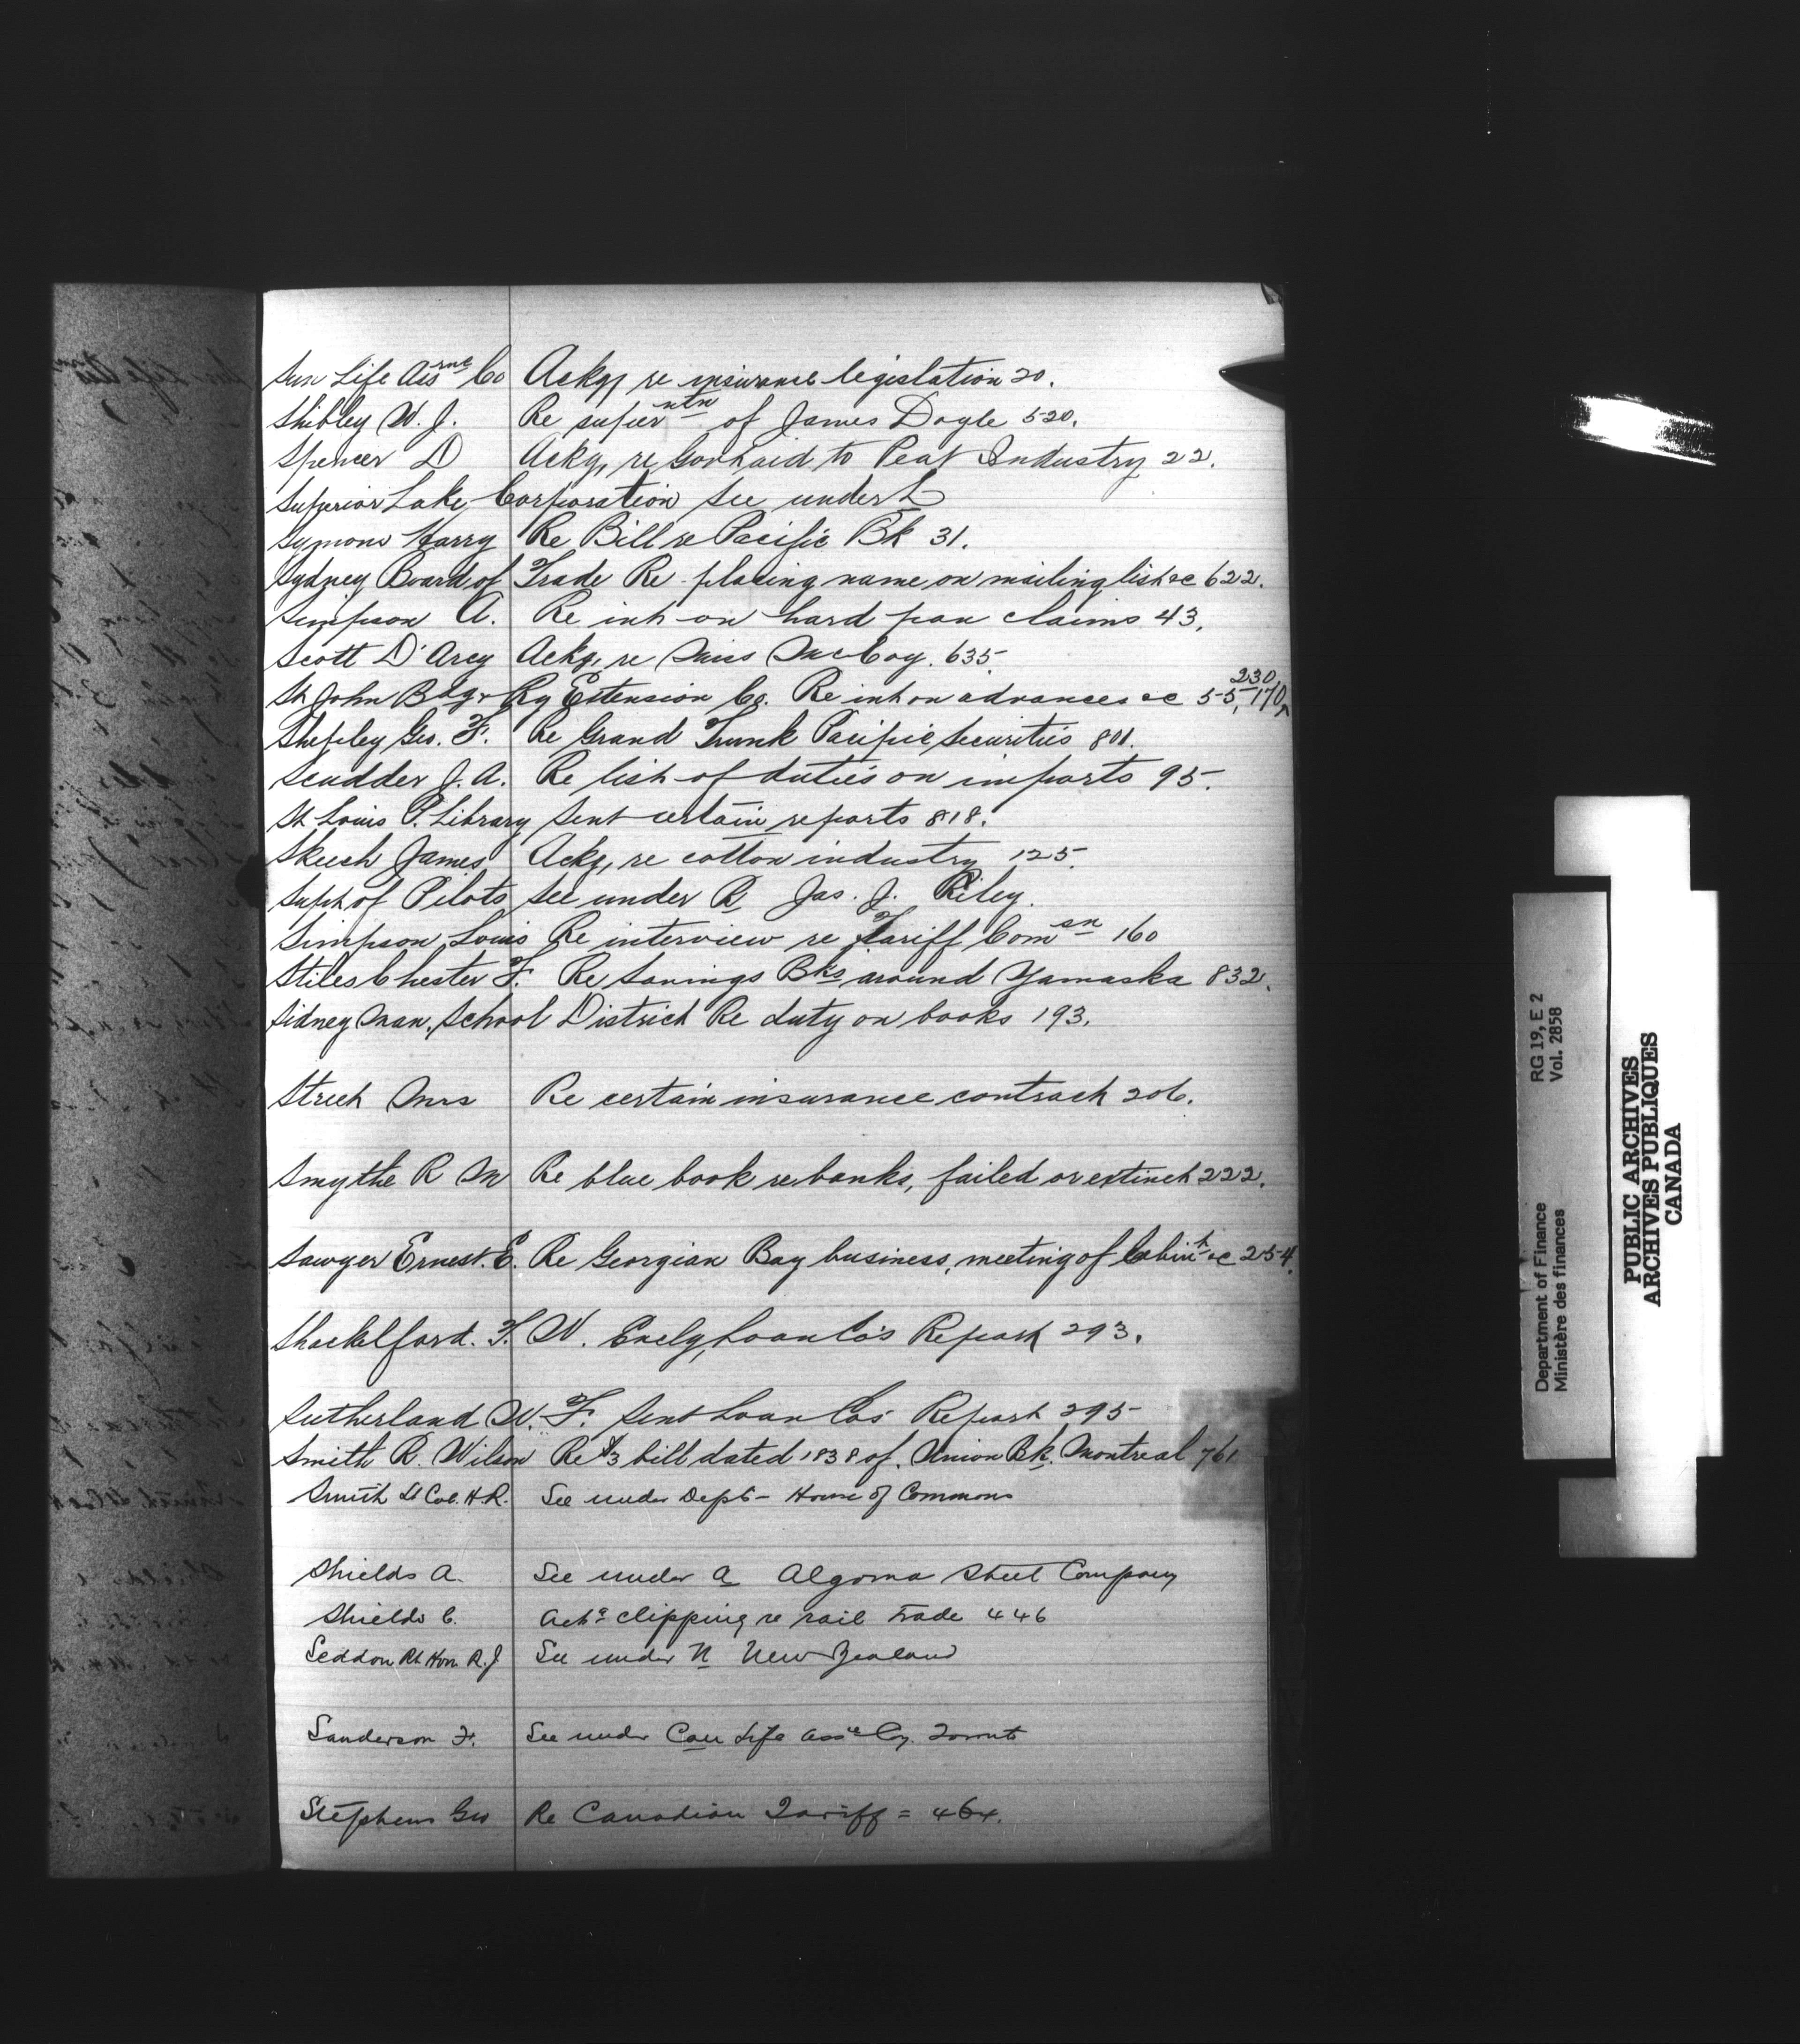 Sun Life Assrnce Co Ackg, re insurance legislation 20.
Shibley W. J. Re superntn of James Doyle 520.
Spencer D Ackg, re Govt aid to Peat Industry 22.
Superior Lake Corporation see under L
Symons Harry Re Bill re Pacific Bk 31.
Sydney Board of Trade Re placing name on mailing list &c 622.
Simpson A. Re int on hard pan claims 43.
Scott D'Arcy Ackg, re Miss McCoy. 635.
St John Bdg & Ry Extension Co. Re int on advances &c 55, 170, 230,
Shepley Geo. F. Re Grand Trunk Pacific Securities 801.
Scudder J. A. Re list of duties on imports 95.
St Louis P. Library Sent certain reports 818.
James Ackg, re cotton industry 125.
Supt of Pilots see under R Jas. J. Riley.
Simpson Louis Re interview re Tariff Comsn 160
Stiles Chester F. Re Savings Bks around Yamaska 832.
Sidney Man. School District Re duty on books 193.
Street Mrs Re certain insurance contract 206.
Smythe R M Re blue book re banks, failed or extinct 222.
Sawyer Ernest. E. Re Georgian Bay business, meeting of Cabint &c 254.
Shackelford. T. W. Encly, Loan Co's Report 293.
Sutherland W. F. Sent Loan Cos' Report 295
Smith R. Wilson Re $3 bill dated 1838 of Union Bk. Montreal 761
Smith Lt Col. H.R. See under Dept - House of Commons
Shields A. See under A Algoma Steel Company
Shields C. Ackg clipping re rail trade 446
Seddon Rt Hon. R. J. See under N New Zealand
Sanderson F. See under Can Life Assce Coy. Toronto
Stephens Geo Re Canadian Tariff = 464.
RG 19, E 2
Vol. 2858
Department of Finance
Ministère des finances
PUBLIC ARCHIVES
ARCHIVES PUBLIQUES
CANADA